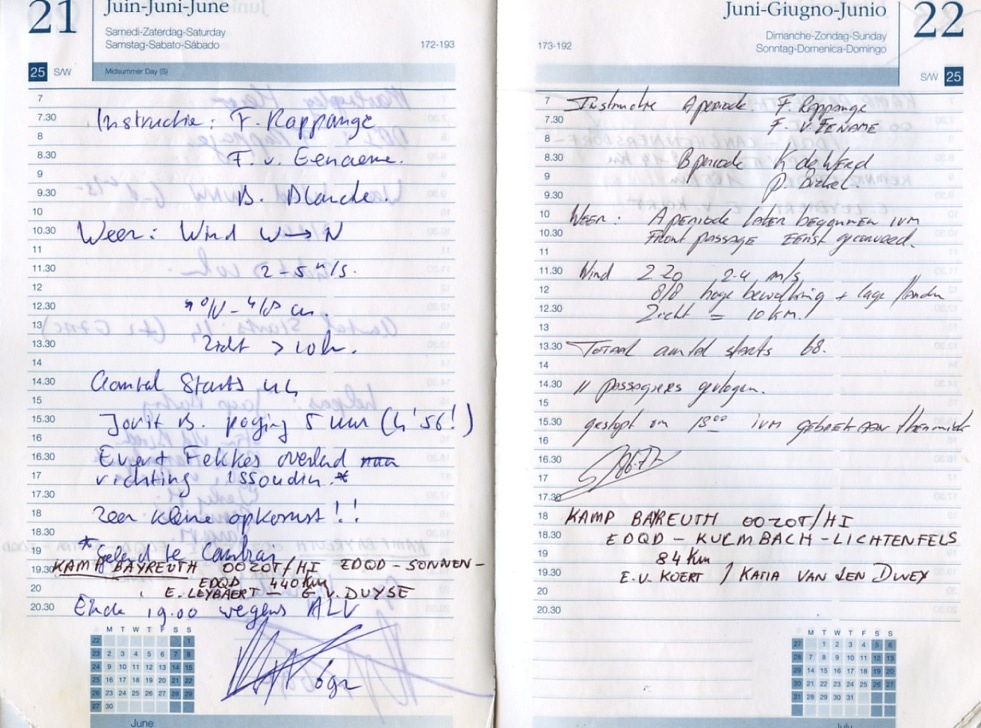 21
Juin-Juni-June
Samedi-Zaterdag-Saturday
Samstag-Sabato-Sábado
172-193
25 S/W
Midsummer Day (S)
7
7.30 Instructie: F. Rappange
8
8.30 F. v. Eenaeme.
9
9.30 B. Blanche.
10
10.30 Weer: Wind W → N
11
11.30 2-5 m/s.
12
12.30
13
13.30 Zicht > 10 km.
14
14.30 Aantal Starts
15
15.30 Jorit B. poging 5 uur (4'56!)
16
16.30 Evert Fekkes overland
17 richting Issoudin.*
17.30
18 Zeer kleine opkomst!!
18.30
19 * geland te Cambrai
19.30 KAMP BAYREUTH OOZOT/HI EDQD - SONNEN-
20 EDQD 440 Km
E. LEYBAERT - G V. DUYSE
20.30 Einde 19.00 wegens ALV
M T W T F S S
June
Juni-Giugno-Junio
22
Dimanche-Zondag-Sunday
Sonntag-Domenica-Domingo
173-192
S/W 25
7 Instructie A periode F. Rappange
7.30 F. v. EENAME
8
8.30 B periode K de Werd
9
9.30
10 Weer: A periode later begonnen ivm
10.30 Front passage Eerst
11
11.30 Wind 220 2-4 m/s
12 8/8 hoge bewolking + lage
12.30 Zicht = 10 km!
13
13.30 Totaal aantal starts 68.
14
14.30 11 passagiers gevlogen.
15
15.30 gestopt om 18°° ivm GEBREK AAN thermiek
16
16.30
17
17.30
18 KAMP BAYREUTH OOZOT/HI
18.30 EDQD - KULMBACH - LICHTENFELS
19 84 Km
19.30 E.V. KOERT / KATIA VAN DEN DWEY
20
20.30
M T W T F S S
July